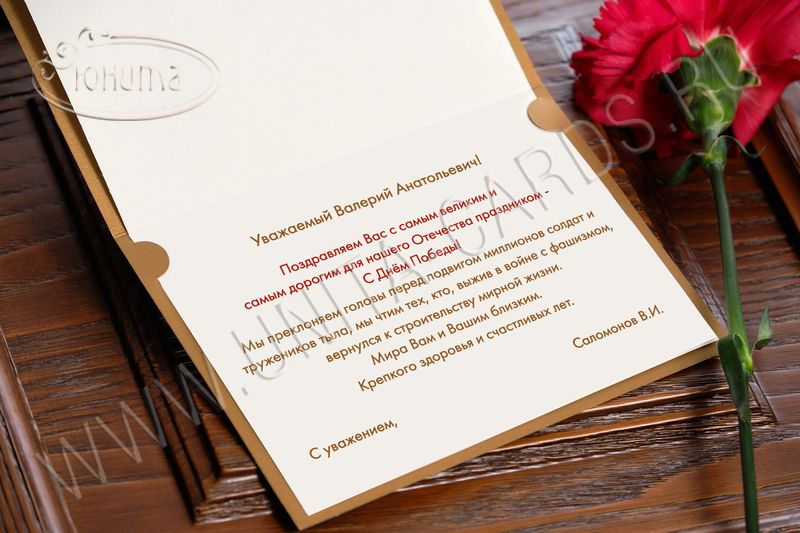 Юнита
Уважаемый Валерий Анатольевич!
Поздравляем Вас с самым великим и
самым дорогим для нашего Отечества праздником -
С Днём Победы!
Мы преклоняем головы перед подвигом миллионов солдат и
тружеников тыла, мы чтим тех, кто, выжив в войне с фашизмом,
вернулся к строительству мирной жизни.
Мира Вам и Вашим близким.
Крепкого здоровья и счастливых лет.
С уважением,
Саломонов В.И.
WWW.UNITA-CARDS.RU